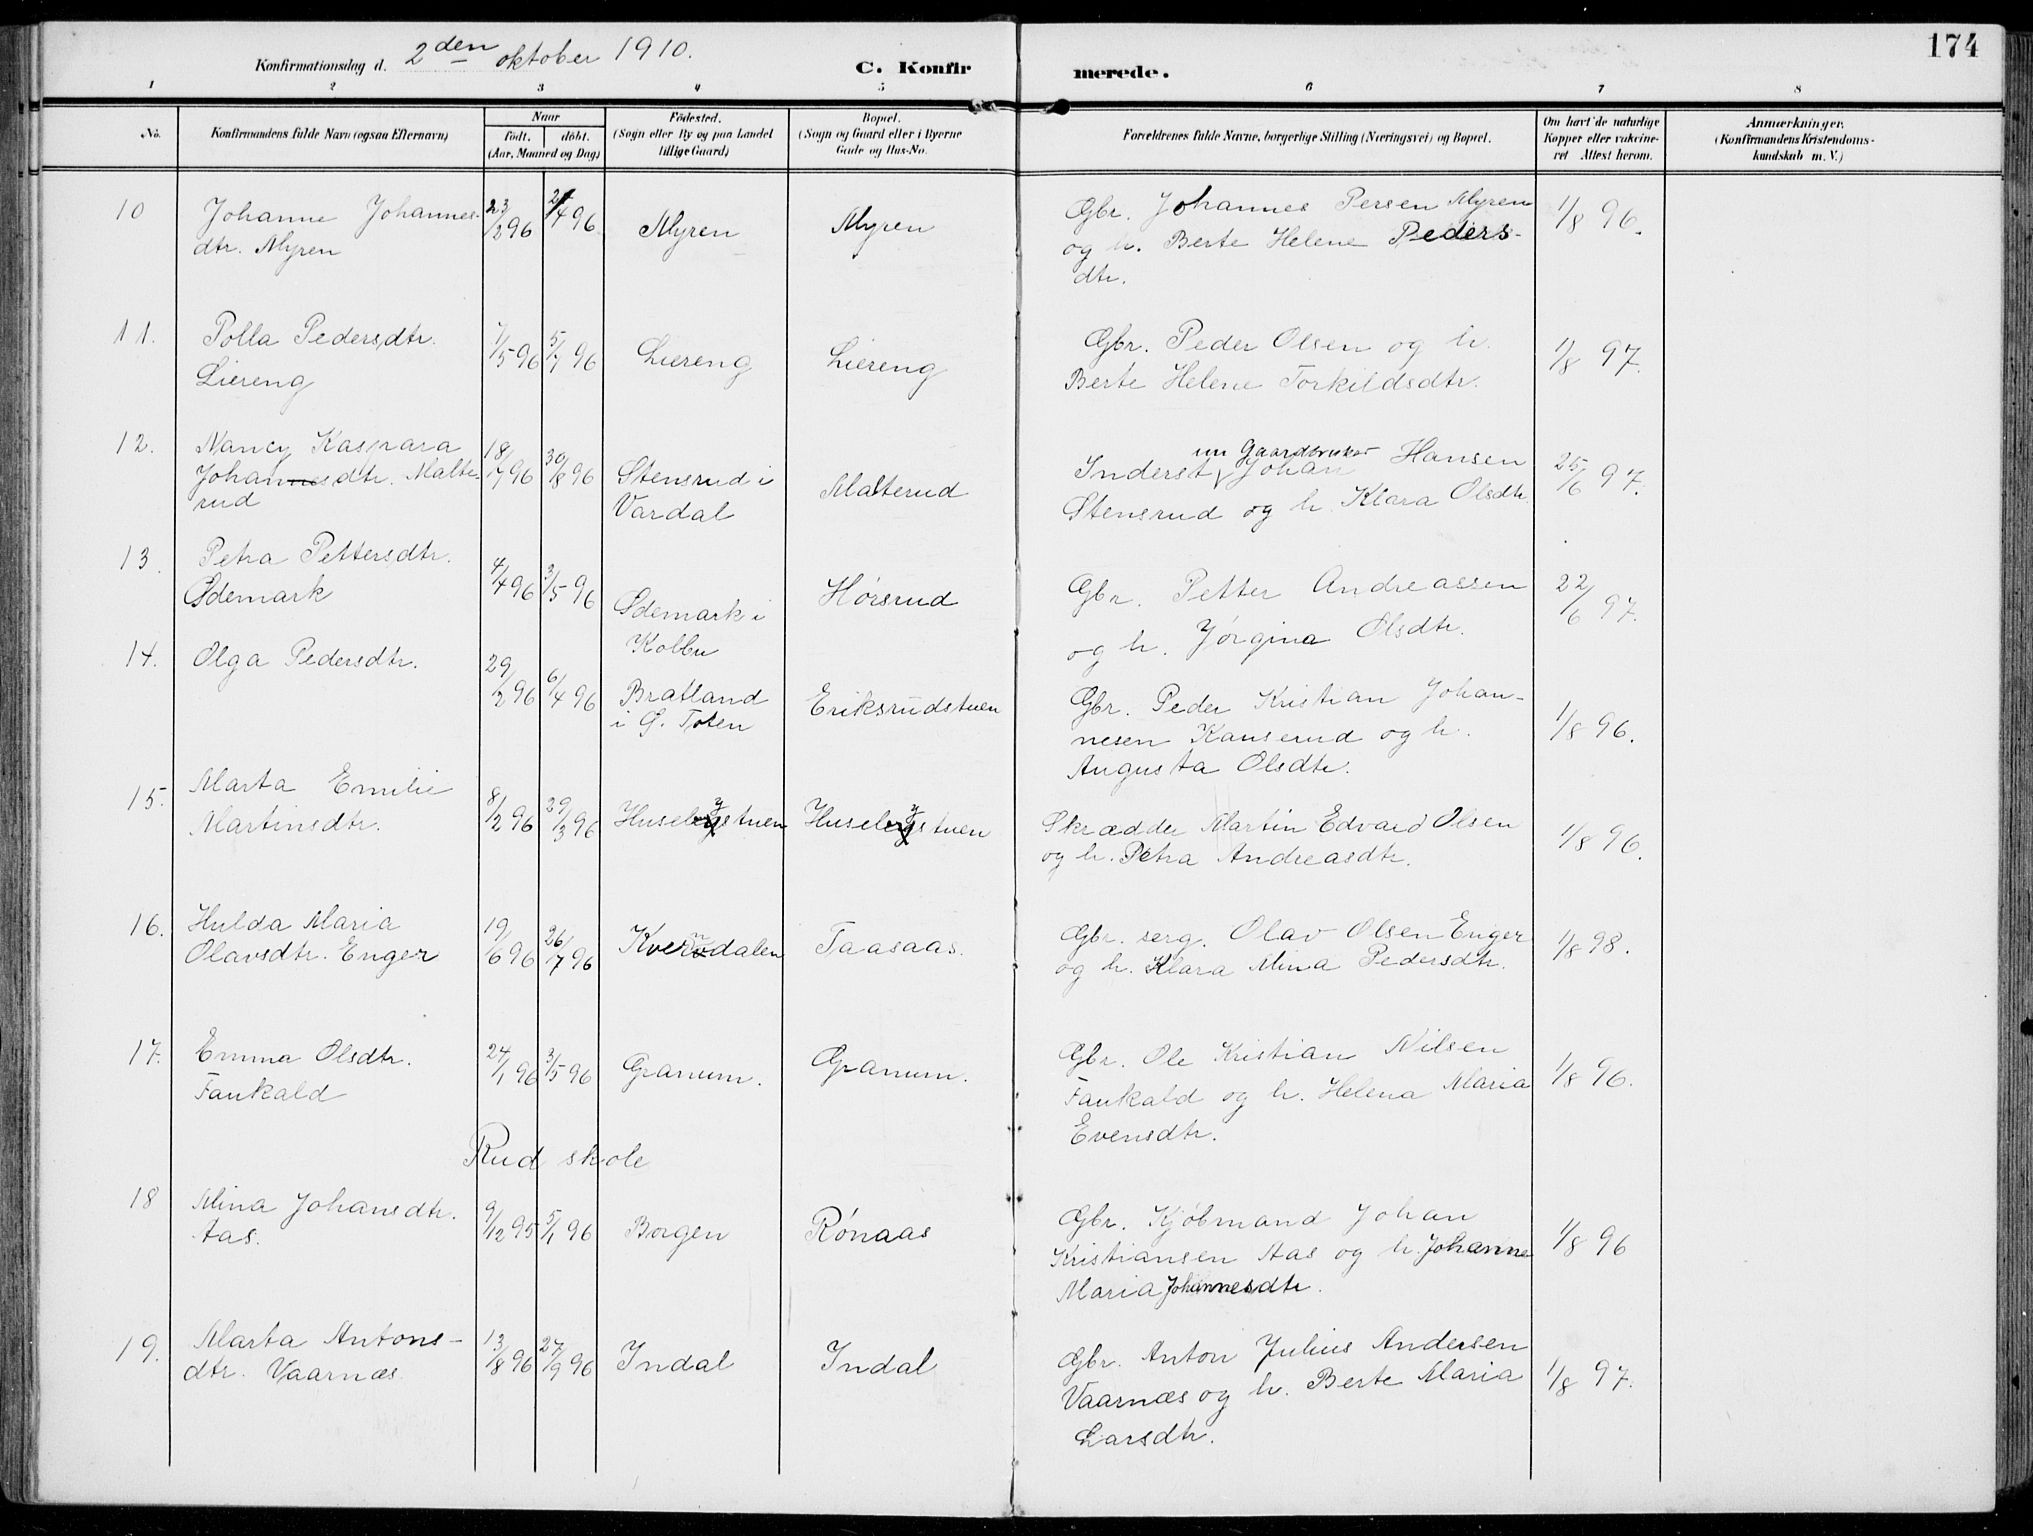 174
Konfirmationsdag d. 2den oktober 1910.
C. Konfirmerede.
1 2 3 4 5 6 7 8
No.
Konfirmandens fulde Navn (ogsaa Efternavn)
Naar
født. døbt.
(Aar, Maaned og Dag)
Fødested.
(Sogn eller By og paa Landet
tillige Gaard)
Bopæl.
(Sogn og Gaard eller i Byerne
Gade og Hus-No.
Forældrenes fulde Navne, borgerlige Stilling (Næringsvei) og Bopæl.
Om havt de naturlige
Kopper eller vakcine-
ret Attest herom.
Anmærkninger.
(Konfirmandens Kristendoms-
kundskab m. V.)
10 Johanne Johannes-
dtr. Myren
23/2 96 /4 96 Myren Myren
Gbr. Johannes Persen Myren
og h. Berte Helene Peders-
dtr.
1/8 96.
11. Polla Pedersdtr.
Liereng
7/5 96 5/7 96 Liereng Liereng
Gbr. Peder Olsen og h.
Berte Helene Torkildsdtr.
1/8 97.
12. Nancy Kaspara
Johannesdtr. Malte-
rud
18/7 96 30/8 96 Stensrud i
Vardal
Malterud
nu Gaardbruker
Inderst Johan Hansen
Stensrud og h. Klara Olsdtr.
25/6 97.
13. Petra Pettersdtr.
Ødemark
4/4 96 3/5 96 Ødemark i
Kolbu
Hørsrud
Gbr. Petter Andreassen
og h. Jørgina Olsdtr.
22/6 97.
14. Olga Pedersdtr.
29/2 96 6/4 96 Bratland
i Ø. Toten
Eriksrudstuen
Gbr. Peder Kristian Johan-
nesen Kanserud og h.
Augusta Olsdtr.
1/8 96.
15. Marta Emilie
Martinsdtr.
8/2 96 29/3 96 Husebystuen Husebystuen
Skrædder Martin Edvard Olsen
og h. Petra Andreasdtr.
1/8 96.
16. Hulda Maria
Olavsdtr. Enger
19/6 96 26/7 96 Kverndalen Taasaas.
Gbr. serg. Olav Olsen Enger
og h. Klara Mina Pedersdtr.
1/8 98.
17. Emma Olsdtr.
Faukald
24/1 96 3/5 96 Granum. Granum.
Gbr. Ole Kristian Nilsen
Faukald og h. Helena Maria
Evensdtr.
1/8 96.
Rud skole
18 Mina Johansdtr.
Aas.
9/12 95 5/1 96 Borgen Rønaas
Gbr. Kjøbmand Johan
Kristiansen Aas og h. Johanne
Maria Johannesdtr.
1/8 96
19. Marta Antons-
dtr. Vaarnæs
13/8 96 27/9 96 Indal Indal
Gbr. Anton Julius Andersen
Vaarnæs og h. Berte Maria
Larsdtr.
1/8 97.